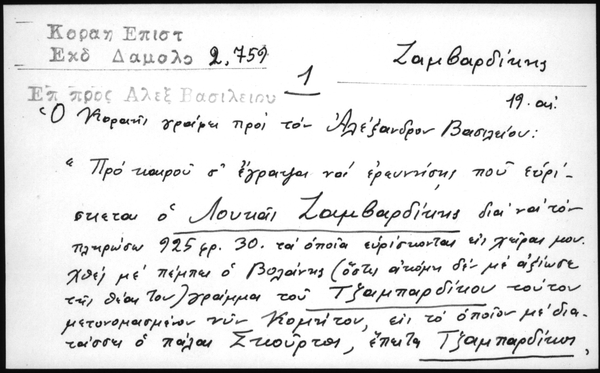 Κοραη Επιστ
Εκδ Δαμαλο 2,759
Ζαμβαρδίκης
1
19. αι.
Επ προς Αλεξ Βασιλειου
Ὁ Κοραῆς γράφει πρὸς τὸν Ἀλέξανδρον Βασιλείου:
"Πρὸ καιροῦ σ' ἔγραψα νὰ ἐρευνήσῃς ποῦ εὑρί-
σκεται ὁ Λουκᾶς Ζαμβαρδίκης διὰ νὰ τὸν
πληρώσω 925 φρ. 30. τὰ ὁποῖα εὑρίσκονται εἰς χεῖρας μου.
χθὲς μὲ πέμπει ὁ Βολάνης (ὅστις ἀκόμη δὲν μὲ ἀξίωσε
τῆς θέας του) γράμμα τοῦ Τζαμπαρδίκου τούτου
μετονομασμένου νῦν Κομήτου, εἰς τὸ ὁποῖον μὲ δια-
τάσσει ὁ πάλαι Σκοῦρτος, ἔπειτα Τζαμπαρδίκος,